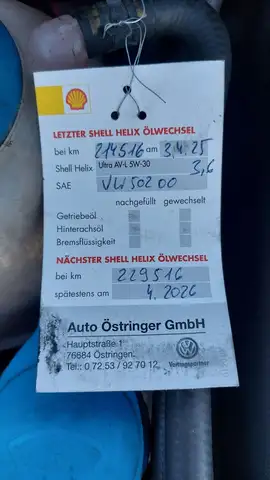 LETZTER SHELL HELIX ÖLWECHSEL
bei km 214516 am 3.4.25
Shell Helix Ultra AV-L 5W-30 3,6
SAE VW 502 00
nachgefüllt gewechselt
Getriebeöl
Hinterachsöl
Bremsflüssigkeit
NÄCHSTER SHELL HELIX ÖLWECHSEL
bei km 229516
spätestens am 4.2026
Auto Östringer GmbH
Hauptstraße 1
76684 Östringen
Tel.: 0 72 53 / 92 70 12
Vertragspartner